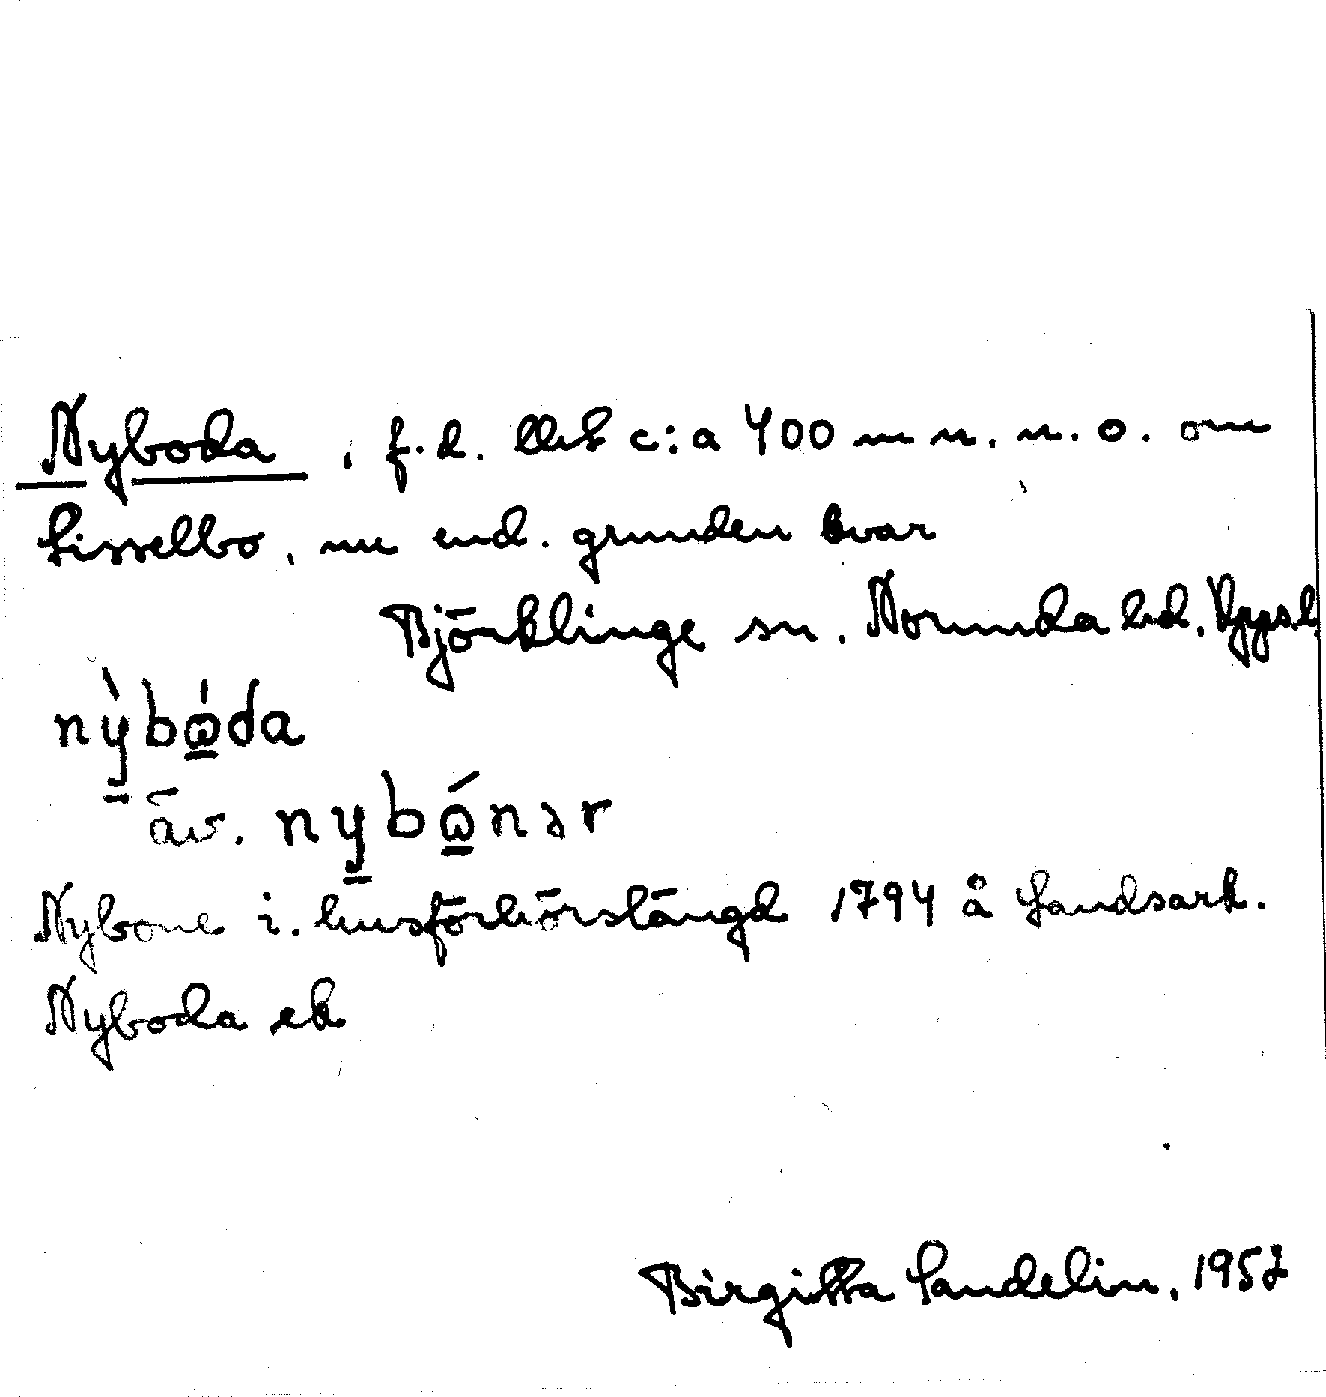 Nyboda, f.d. c:a 400 m n. n. o. om
Lisselbo, nu end. grunden kvar
Björklinge sn. Norunda hd. Upps.l
nỳ̲bώ̲da
äv. ny̲bώ̲nər
Nybone i. husförhörslängd 1794 å Landsark.
Nyboda ek
Birgitta Sandelin, 1952